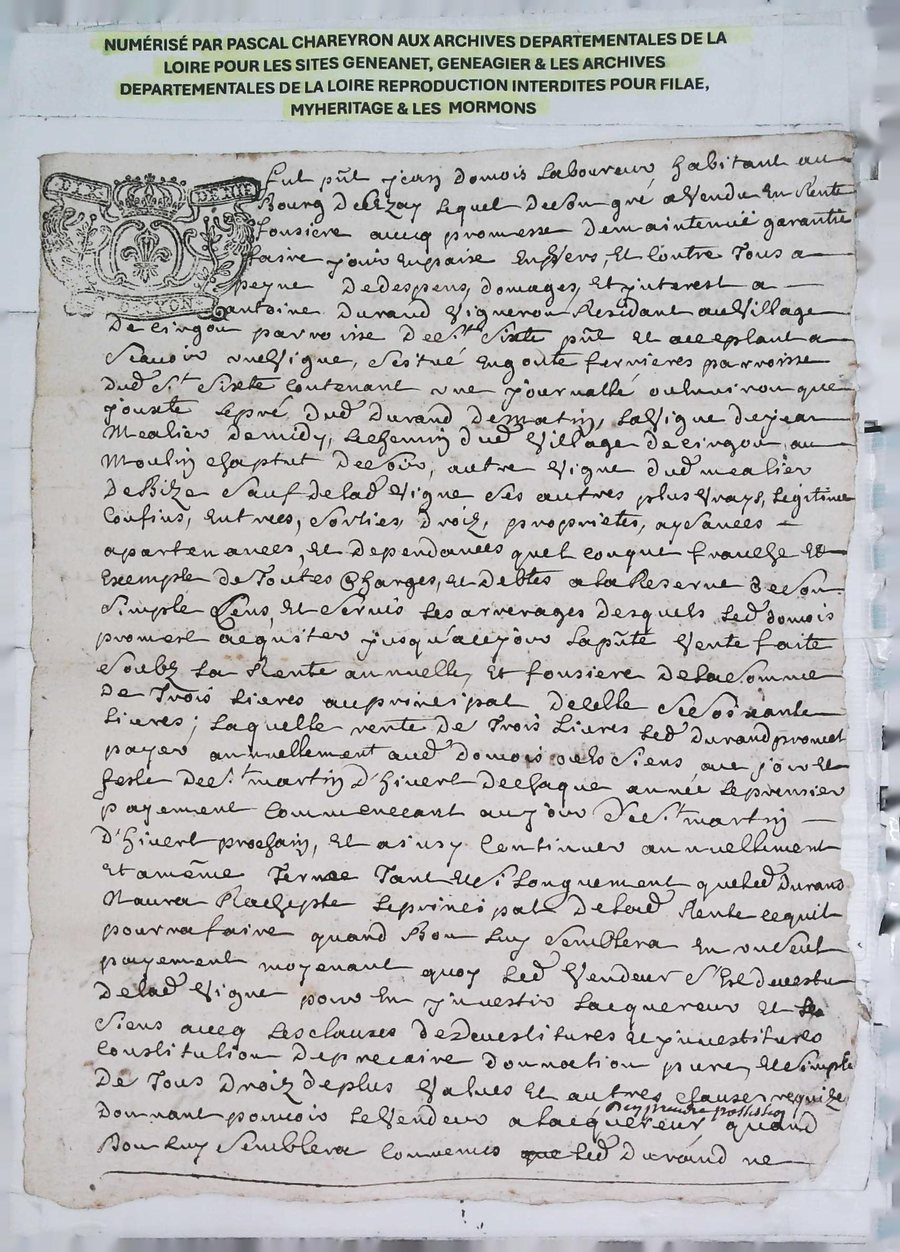 NUMÉRISÉ PAR PASCAL CHAREYRON AUX ARCHIVES DEPARTEMENTALES DE LA
LOIRE POUR LES SITES GENEANET, GENEAGIER & LES ARCHIVES
DEPARTEMENTALES DE LA LOIRE REPRODUCTION INTERDITES POUR FILAE,
MYHERITAGE & LES MORMONS
DIX DENIE
LYON
fut pñt jean domois Laboureur habitant au
Bourg de seson gré a Vendu En Rente
fonsiere avecq promesse demaintenüe garantie
faire joüir Enpaise Envers, Et Contre Tous a
peyne Dedespens, domages, Et jnterest a
antoine Durand Vigneron Residant auVillage
De cirgou parroisse DeSt Sixte pñt Et acceptant a
Scauoir vneVigne, Scitué parroisse
dud St Sixte Contenant vne journallé ouenuiron que
jouxte Lepré dud Durand Dematin, LaVigne dejean
Mealier Demidy, Lechemin dud Village de cirgou au
Moulin chaptut DeSoir, autre Vigne dud mealier
DeBize Sauf Delad Vigne Ses autres plus Vrays, Legitime
Confins, Entrees, Sorties, Droiz, proprietés, aysances
apartenances, Et Dependances quelconque franche Et
Exempte de Toutes Charges, Et Debtes a la Reserue deson
Simple Cens, Et Seruis Les arrerages Desquels Led domois
promest acquiter jusqu'aujour Lapñte Vente faite
Soubz La Rente annuelle, Et fonsiere DelaSomme
De Trois Liures auprincipal Decelle deSoixante
Liures; Laquelle rente de Trois Liures Led Durand promet
payer annuellement aud Domois ouls Siens, aue jour Et
feste DeSt martin D'hivert Dechaque année Lepremier
payement Commenceant aujour DeSt martin
D'hivert prochain, Et ainsy Continuer annuellement
Et amême Terme Tant Et Si Longuement queled Durand
Naura Rachepté Leprincipal Delad Rente cequil
pourra faire quand Bon Luy Semblera En vnSeul
payement moyenant quoy Led Vendeur S'Est deuestu
Delad Vigne pour En jnuestir Lacquereur Et Les
Siens avecq Lesclauses dedeuestitures Et jnuestitures
Constitution Deprecaire donnation pure, Et Simple
De Tous Droiz deplus Values Et autres clauses requize
Donnant pouuoir LeVendeur a Lacquereur quand
Bon Luy Semblera Conuenus que Led Durand ne